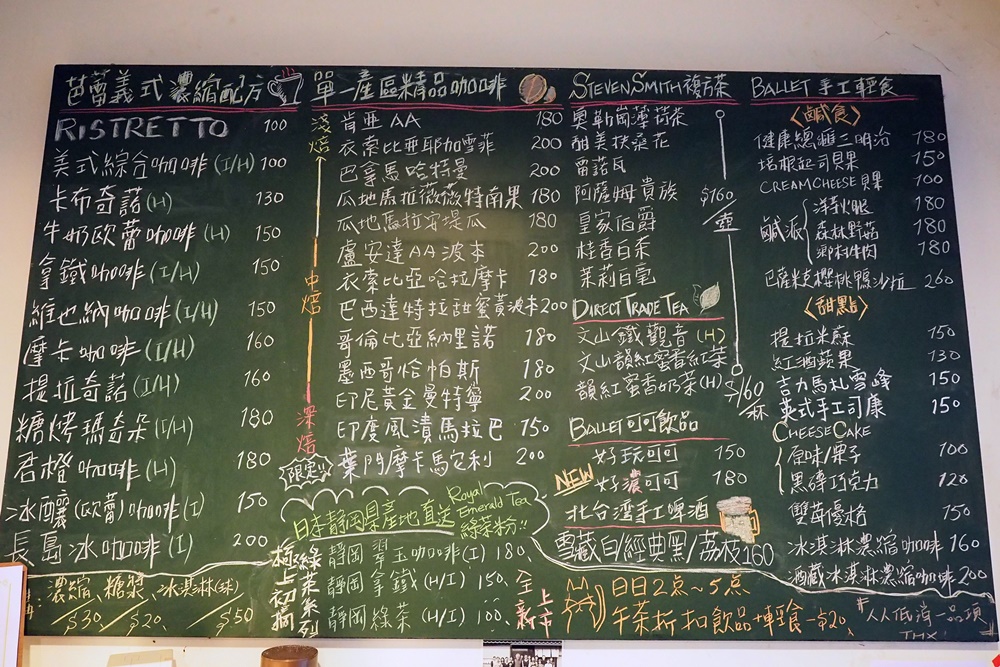 芭蕾義式濃縮配方
RISTRETTO 100
美式綜合咖啡(I/H) 100
卡布奇諾(H) 130
牛奶歐蕾咖啡(H) 150
拿鐵咖啡(I/H) 150
維也納咖啡(I/H) 150
摩卡咖啡(I/H) 160
提拉奇諾(I/H) 160
糖烤瑪奇朵(I/H) 180
香橙咖啡(H) 180
冰釀(歐蕾)咖啡(I) 150
長島冰咖啡(I) 200
濃縮 $30 糖漿 $20 冰淇淋(球) $50
單一產區精品咖啡
淺焙
中焙
深焙
肯亞AA 180
衣索比亞耶加雪菲 200
巴拿馬哈特曼 200
瓜地馬拉薇薇特南果 180
瓜地馬拉安堤瓜 180
盧安達AA波本 200
衣索比亞哈拉摩卡 180
巴西達特拉甜蜜黃波本 200
哥倫比亞納里諾 180
墨西哥恰帕斯 180
印尼黃金曼特寧 200
印度風漬馬拉巴 150
限定!! 葉門摩卡馬定利 200
日本静岡県産地直送 Royal Emerald Tea 綠茶粉!!
極上初摘 綠茶系列
静岡 翠玉咖啡(I) 180
静岡 拿鐵(H/I) 150
静岡 綠茶(H/I) 100
全新上市
STEVENSMITH複方茶
奧勒崗薄荷茶
甜美扶桑花
雷諾瓦
阿薩姆貴族
皇家伯爵
桂香白茶
茉莉白毫
$160/壺
DIRECT TRADE TEA
文山鐵觀音(H)
文山韻紅蜜香紅茶
韻紅蜜香奶茶(H) $160/杯
BALLET可可飲品
好玩可可 150
NEW 好濃可可 180
北台灣手工啤酒
雪藏白/經典黑/荔枝 160
日日2点～5点
午茶折扣飲品+輕食-$20
BALLET 手工輕食
〈鹹食〉
健康總匯三明治 180
培根起司貝果 150
CREAM CHEESE貝果 100
鹹派
洋芋火腿 180
森林野菇 180
鄉村牛肉 180
巴薩米克櫻桃鴨沙拉 260
〈甜點〉
提拉米蘇 150
紅酒蘋果 130
吉力馬札雪峰 150
英式手工司康 150
CHEESE CAKE
原味/栗子 100
黑磚巧克力 120
雙莓優格 150
冰淇淋濃縮咖啡 160
酒藏冰淇淋濃縮咖啡 200
#人人低消一品項
THX!